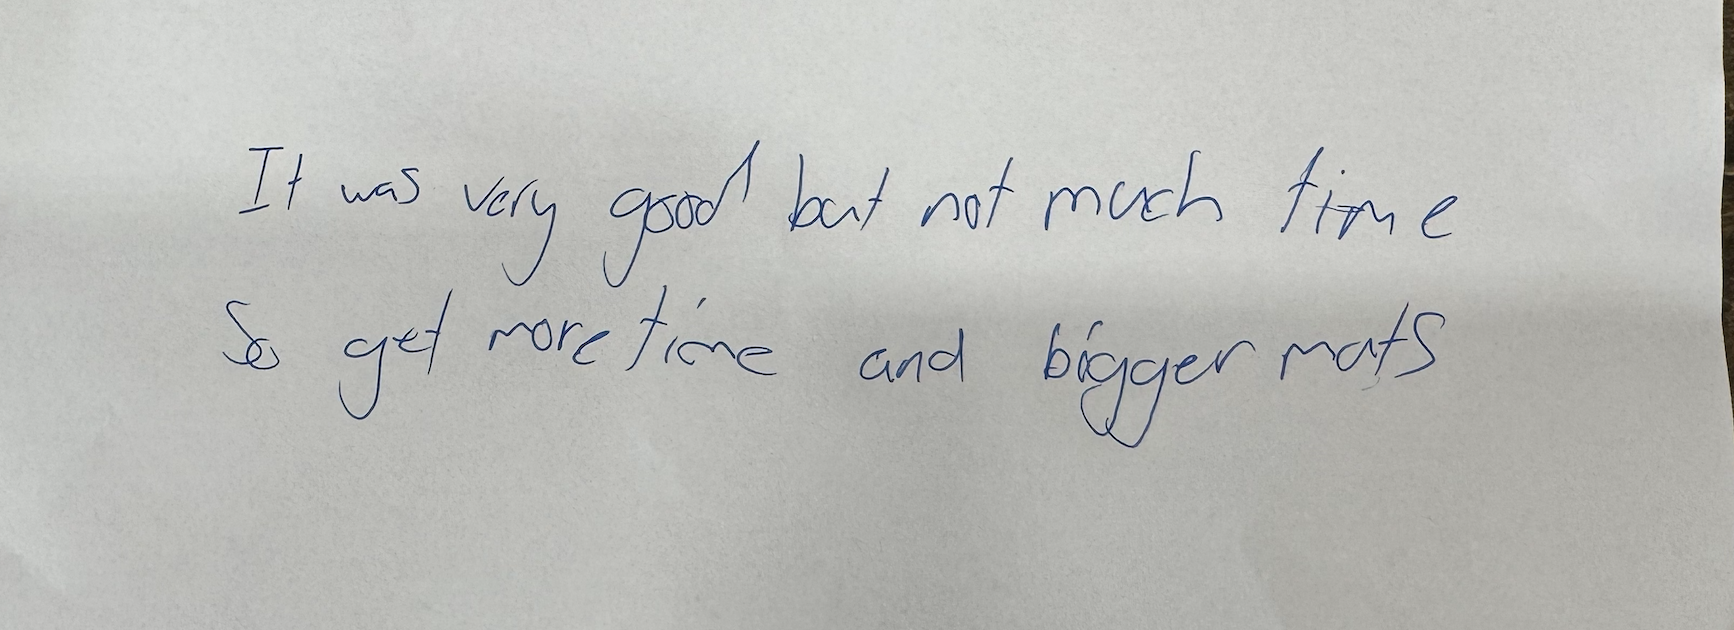 It was very good but not much time
So get more time and bigger mats